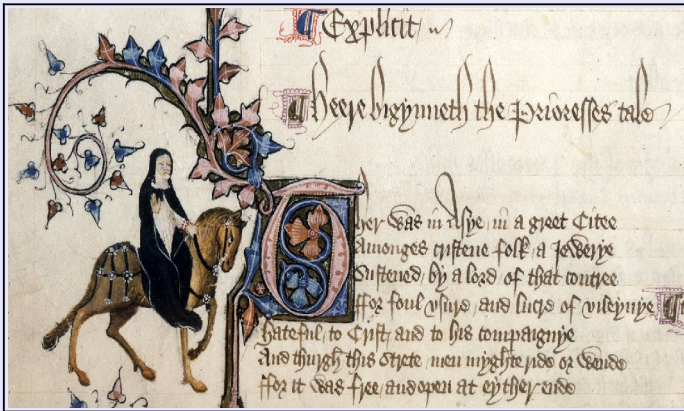 Explicit
Heere bigynneth the Prioresses tale
Ther was in Asye in a greet Citee
Amonges cristene folk a Jewerye
Sustened by a lord of that contree
ffor foul vsure and lucre of vileynye
hateful to Crist and to his compaignye
And thurgh this strete men myghte ride or wende
ffor it was free and open at eyther ende